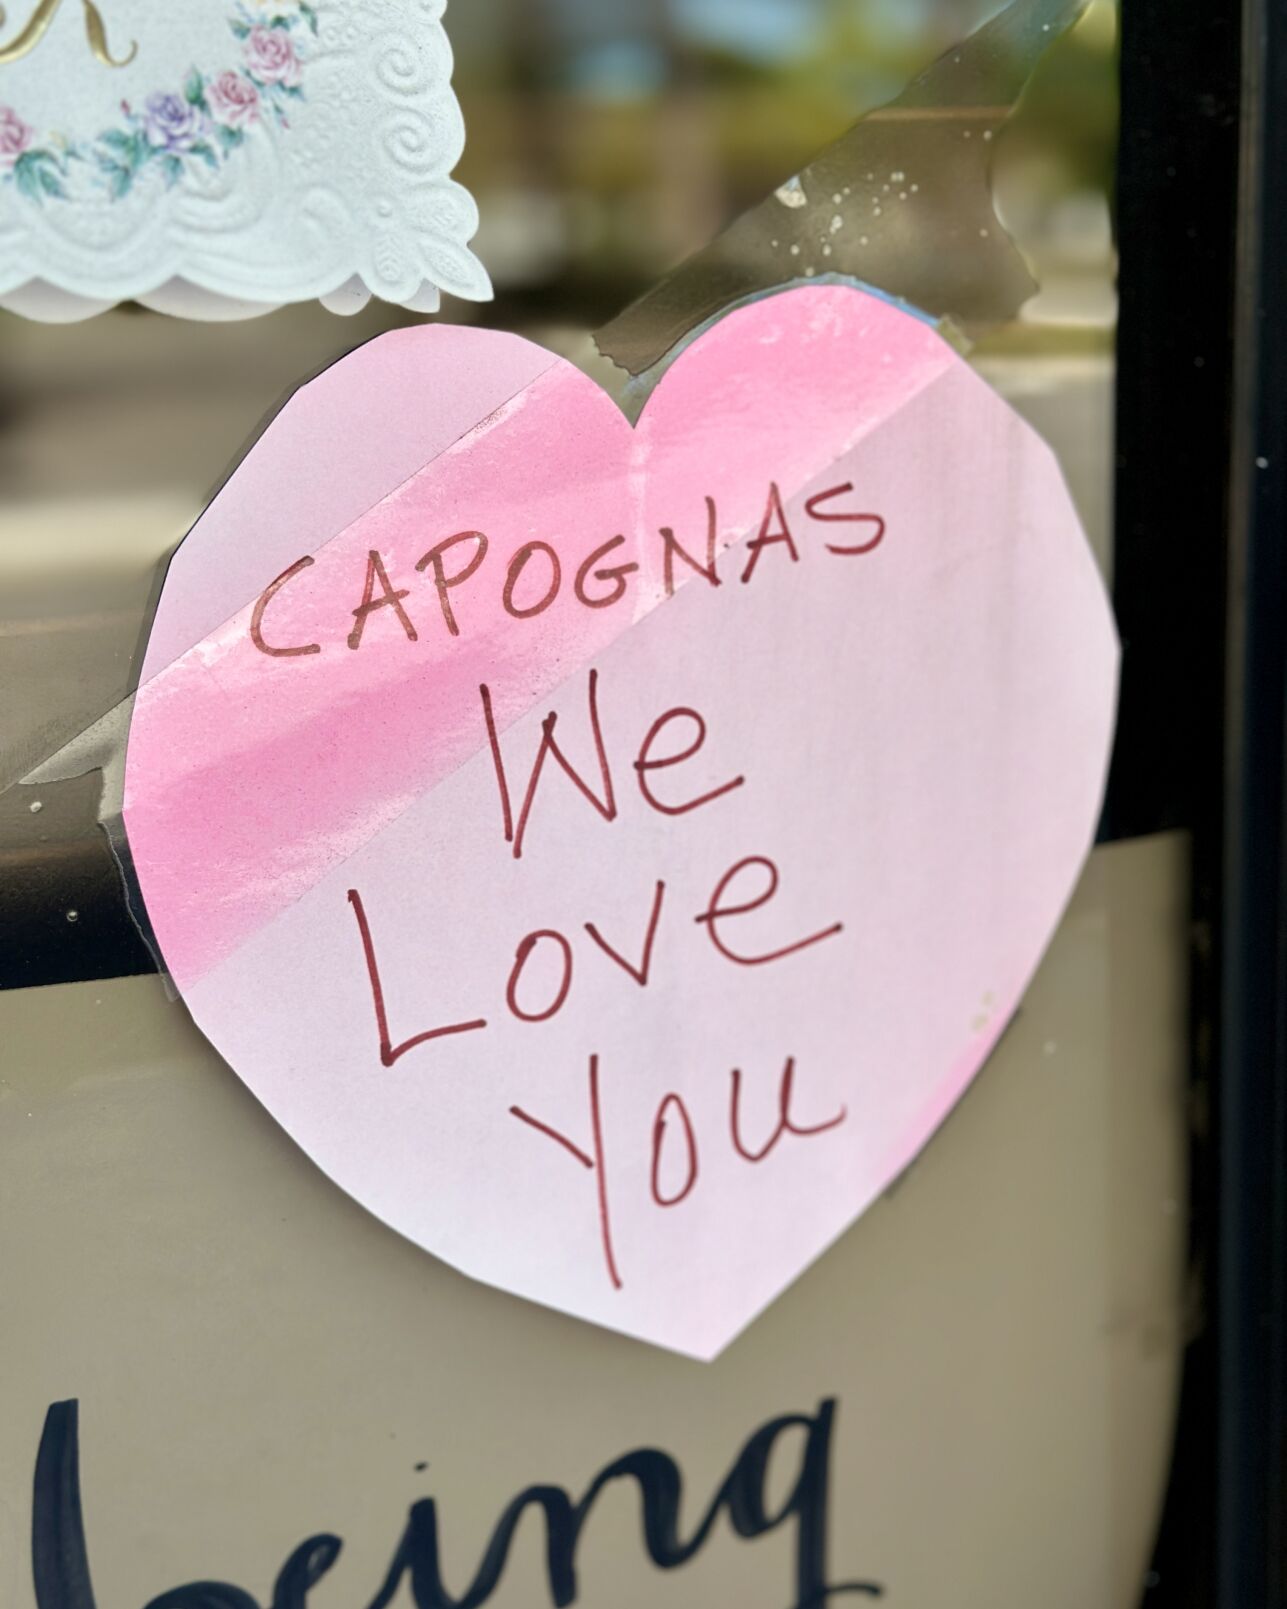 CAPOGNAS
We
Love
You
being